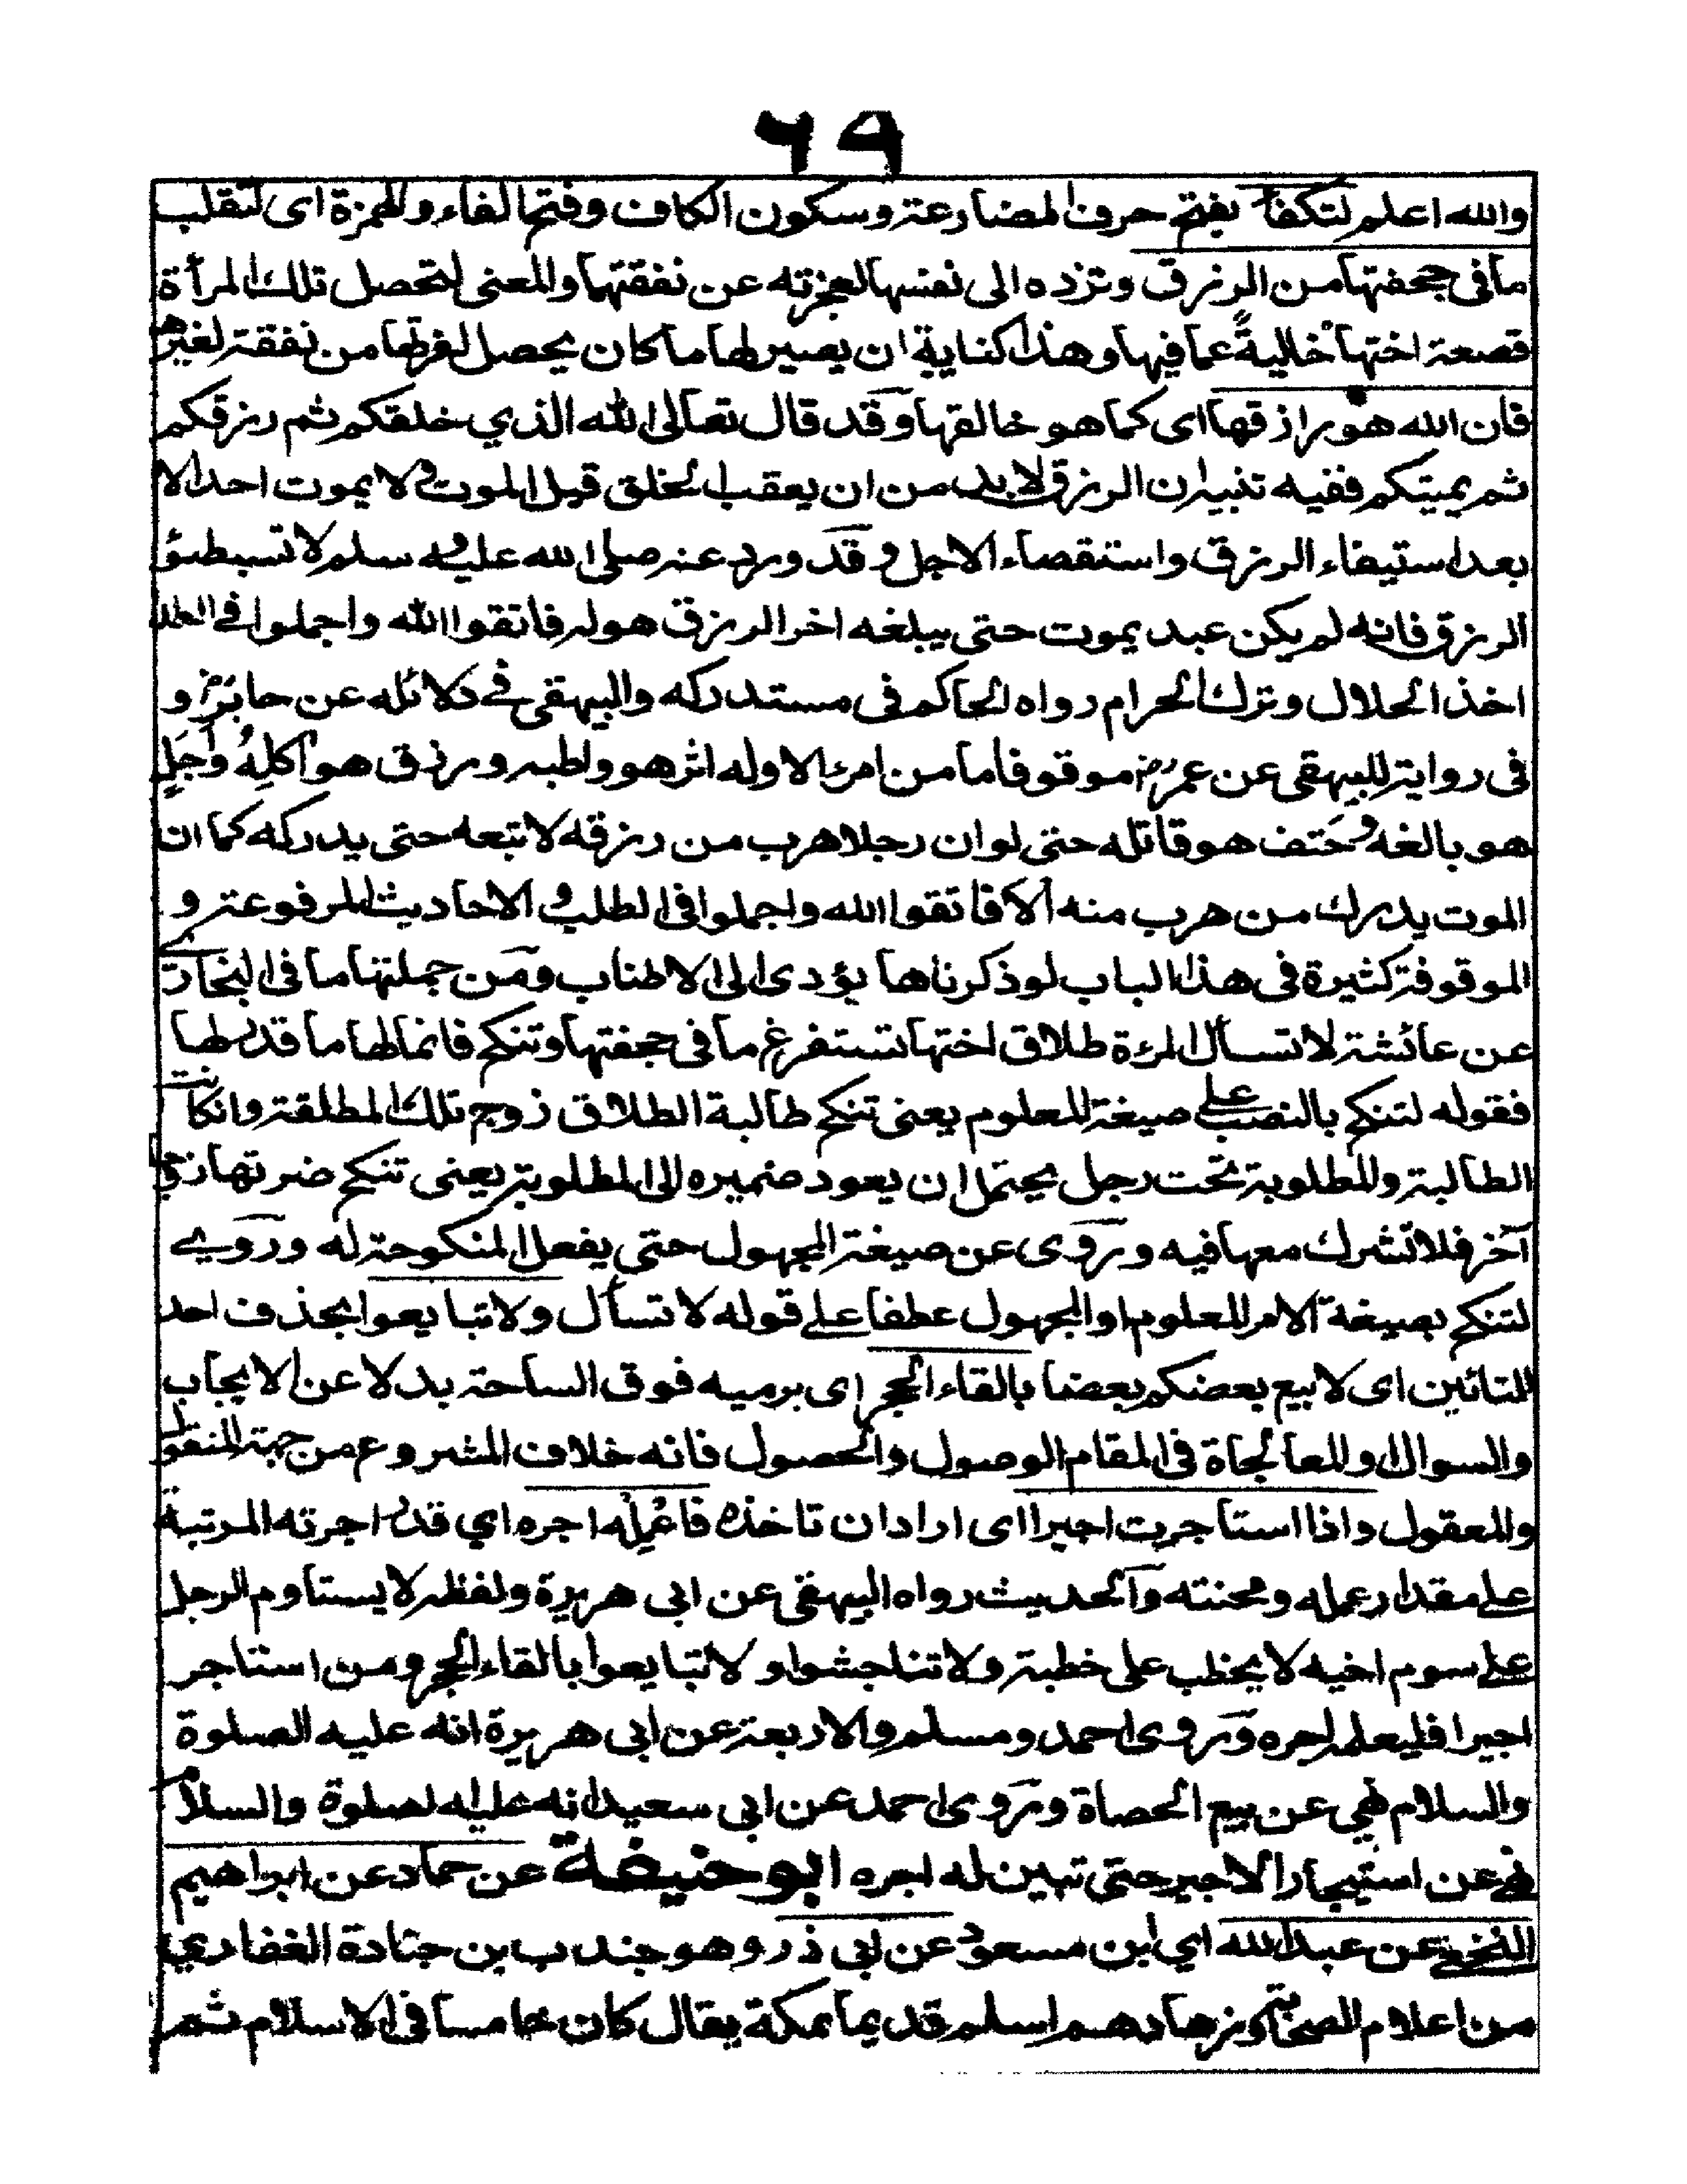 ٦٩
والله اعلم لتكفأ بفتح حرف المضارعة وسكون الكاف وفتح الفاء والهمزة اى لتقلب
ما فى جحفتها من الرزق وتزده الى نفسها لعجزته عن نفقتها والمعنى لتحصل تلك المرأة
قصعة اختها خاليةً عما فيها وهذا كناية ان يصير لها ما كان يحصل لغرتها من نفقة لغيرها
فان الله هو رازقها اى كما هو خالقها وقد قال تعالى الله الذي خلقكم ثم رزقكم
ثم يميتكم ففيه تنبيه ان الرزق لا بد من ان يعقب الخلق قبل الموت ولا يموت احد الا
بعد استيفاء الرزق واستقصاء الاجل وقد ورد عنه صلى الله عليه وسلم لا تستبطئو
الرزق فانه لم يكن عبد يموت حتى يبلغه اخر الرزق هو له فاتقوا الله واجملوا فى الطلب
اخذ الحلال وترك الحرام رواه الحاكم فى مستدركه والبيهقى فى دلائله عن جابر رض و
فى رواية للبيهقى عن عمر رض موقوفا ما من امرء الا وله اثر هو واطبه ورزق هو آكِلِهُ وَاَجَلٍ
هو بالغه وحَتف هو قاتله حتى لو ان رجلا هرب من رزقه لاتبعه حتى يدركه كما ان
الموت يدرك من هرب منه ألا فاتقوا الله واجملوا فى الطلب و الاحاديث المرفوعة و
الموقوفة كثيرة فى هذا الباب لو ذكرناها يؤدى الى الاطناب ومن جملتها ما فى البخارى
عن عائشة لا تسأل المرءة طلاق اختها تستفرغ ما فى جحفتها وتنكح فانما لها ما قدر لها
فقوله لتنكح بالنصب على صيغة المعلوم يعنى تنكح طالبة الطلاق زوج تلك المطلقة وانكانت
الطالبة والمطلوبة تحت رجل يحتمل ان يعود ضميره الى المطلوبة يعنى تنكح ضرتها زوجا
آخر فلا تشرك معها فيه وروى عن صيغة المجهول حتى يفعل المنكوحة له وروي
لتنكح بصيغة الامر المعلوم او المجهول عطفا على قوله لا تسأل ولا تبايعوا بحذف احد
التائين اى لا بيع بعضكم بعضا بالقاء الحجر اى برميه فوق الساحة بدلا عن الايجاب
والسوال والمعالجاة فى المقام الوصول والحصول فانه خلاف المشروع من جهة المنقول
والمعقول واذا استاجرت اجيرا اى اراد ان تاخذه فاعْمِلْه اجره اي قدر اجرته المرتبة
على مقدار عمله ومحنته والحديث رواه البيهقى عن ابى هريرة ولفظه لا يستاوم الرجل
على سوم اخيه لا يخطب على خطبة ولا تناجشوا ولا تبايعوا بالقاء الحجر ومن استاجر
اجيرا فليعلمه اجره وروى احمد ومسلم والاربعة عن ابى هريرة انه عليه الصلوة
والسلام نهي عن بيع الحصاة وروى احمد عن ابى سعيد انه عليه لصلوة والسلام
نهى عن استيجار الاجير حتى تبين له اجره ابو حنيفة عن حماد عن ابراهيم
النخعى عن عبد الله اي ابن مسعود عن ابى ذر وهو جندب بن جنادة الغفاري
من اعلام الصحابة وزهادهم اسلم قديما بمكة يقال كان خامسا فى الاسلام ثمر